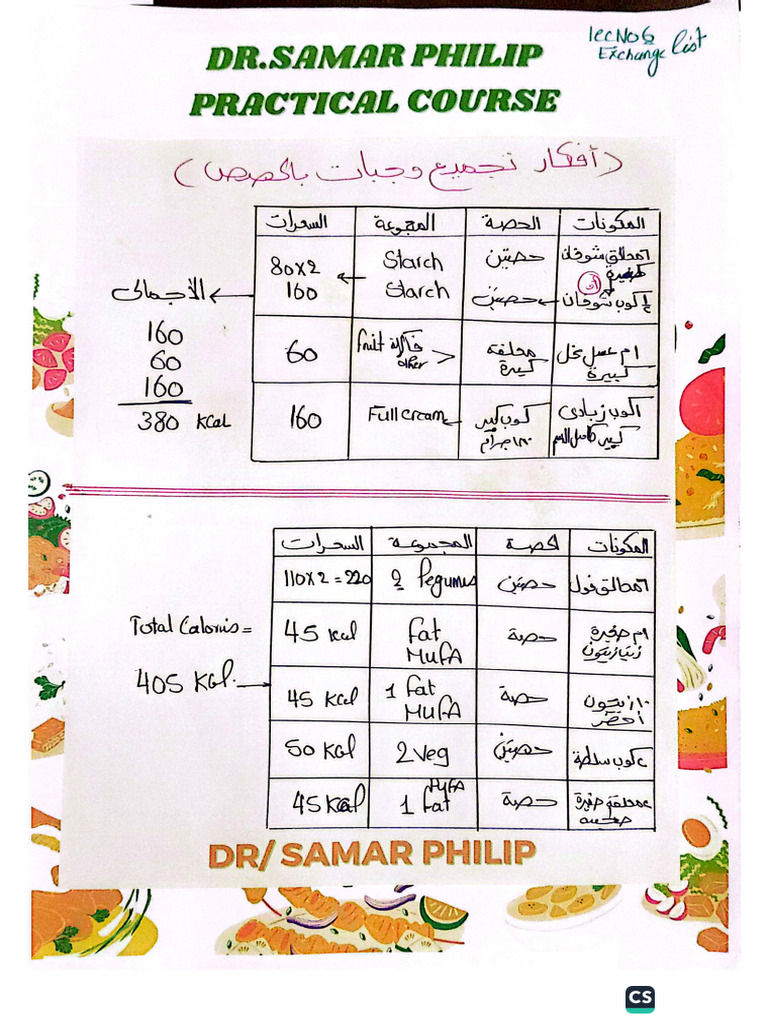 lec No 6
Exchange list
DR.SAMAR PHILIP
PRACTICAL COURSE
(أفكار تجميع وجبات بالحصص)
المكونات الحصة المجموعة السعرات
٦ معالق شوفان صغيرة حصتين Starch 80x2
أو
كوب شوفان حصتين Starch 160
١م عسل نحل كبيرة معلقة كبيرة fruit فاكهة other 60
١كوب زبادى كبير كامل الدسم كوب كبير ١٨٠ جرام Full cream 160
الأجمالى
160
60
160
380 Kcal
المكونات الحصة المجموعة السعرات
٦معالق فول حصتين 2 legumes 110x2=220
١م صغيرة زيت زيتون حصة fat MUFA 45 Kcal
١٠ زيتون أخضر حصة 1 fat MUFA 45 Kcal
٢ كوب سلطة حصتين 2 Veg 50 Kcal
معلقة صغيرة حصة 1 fat MUFA 45 Kcal
Total Calories =
405 Kcal.
DR/ SAMAR PHILIP
CS